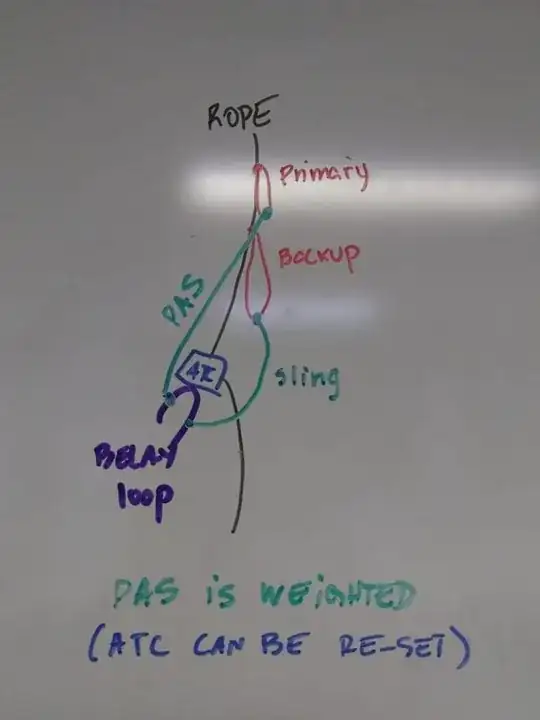 ROPE
Primary
BACKUP
PAS
sling
BELAY
loop
PAS is WEiGHTED
(ATC CAN BE RE-SET)